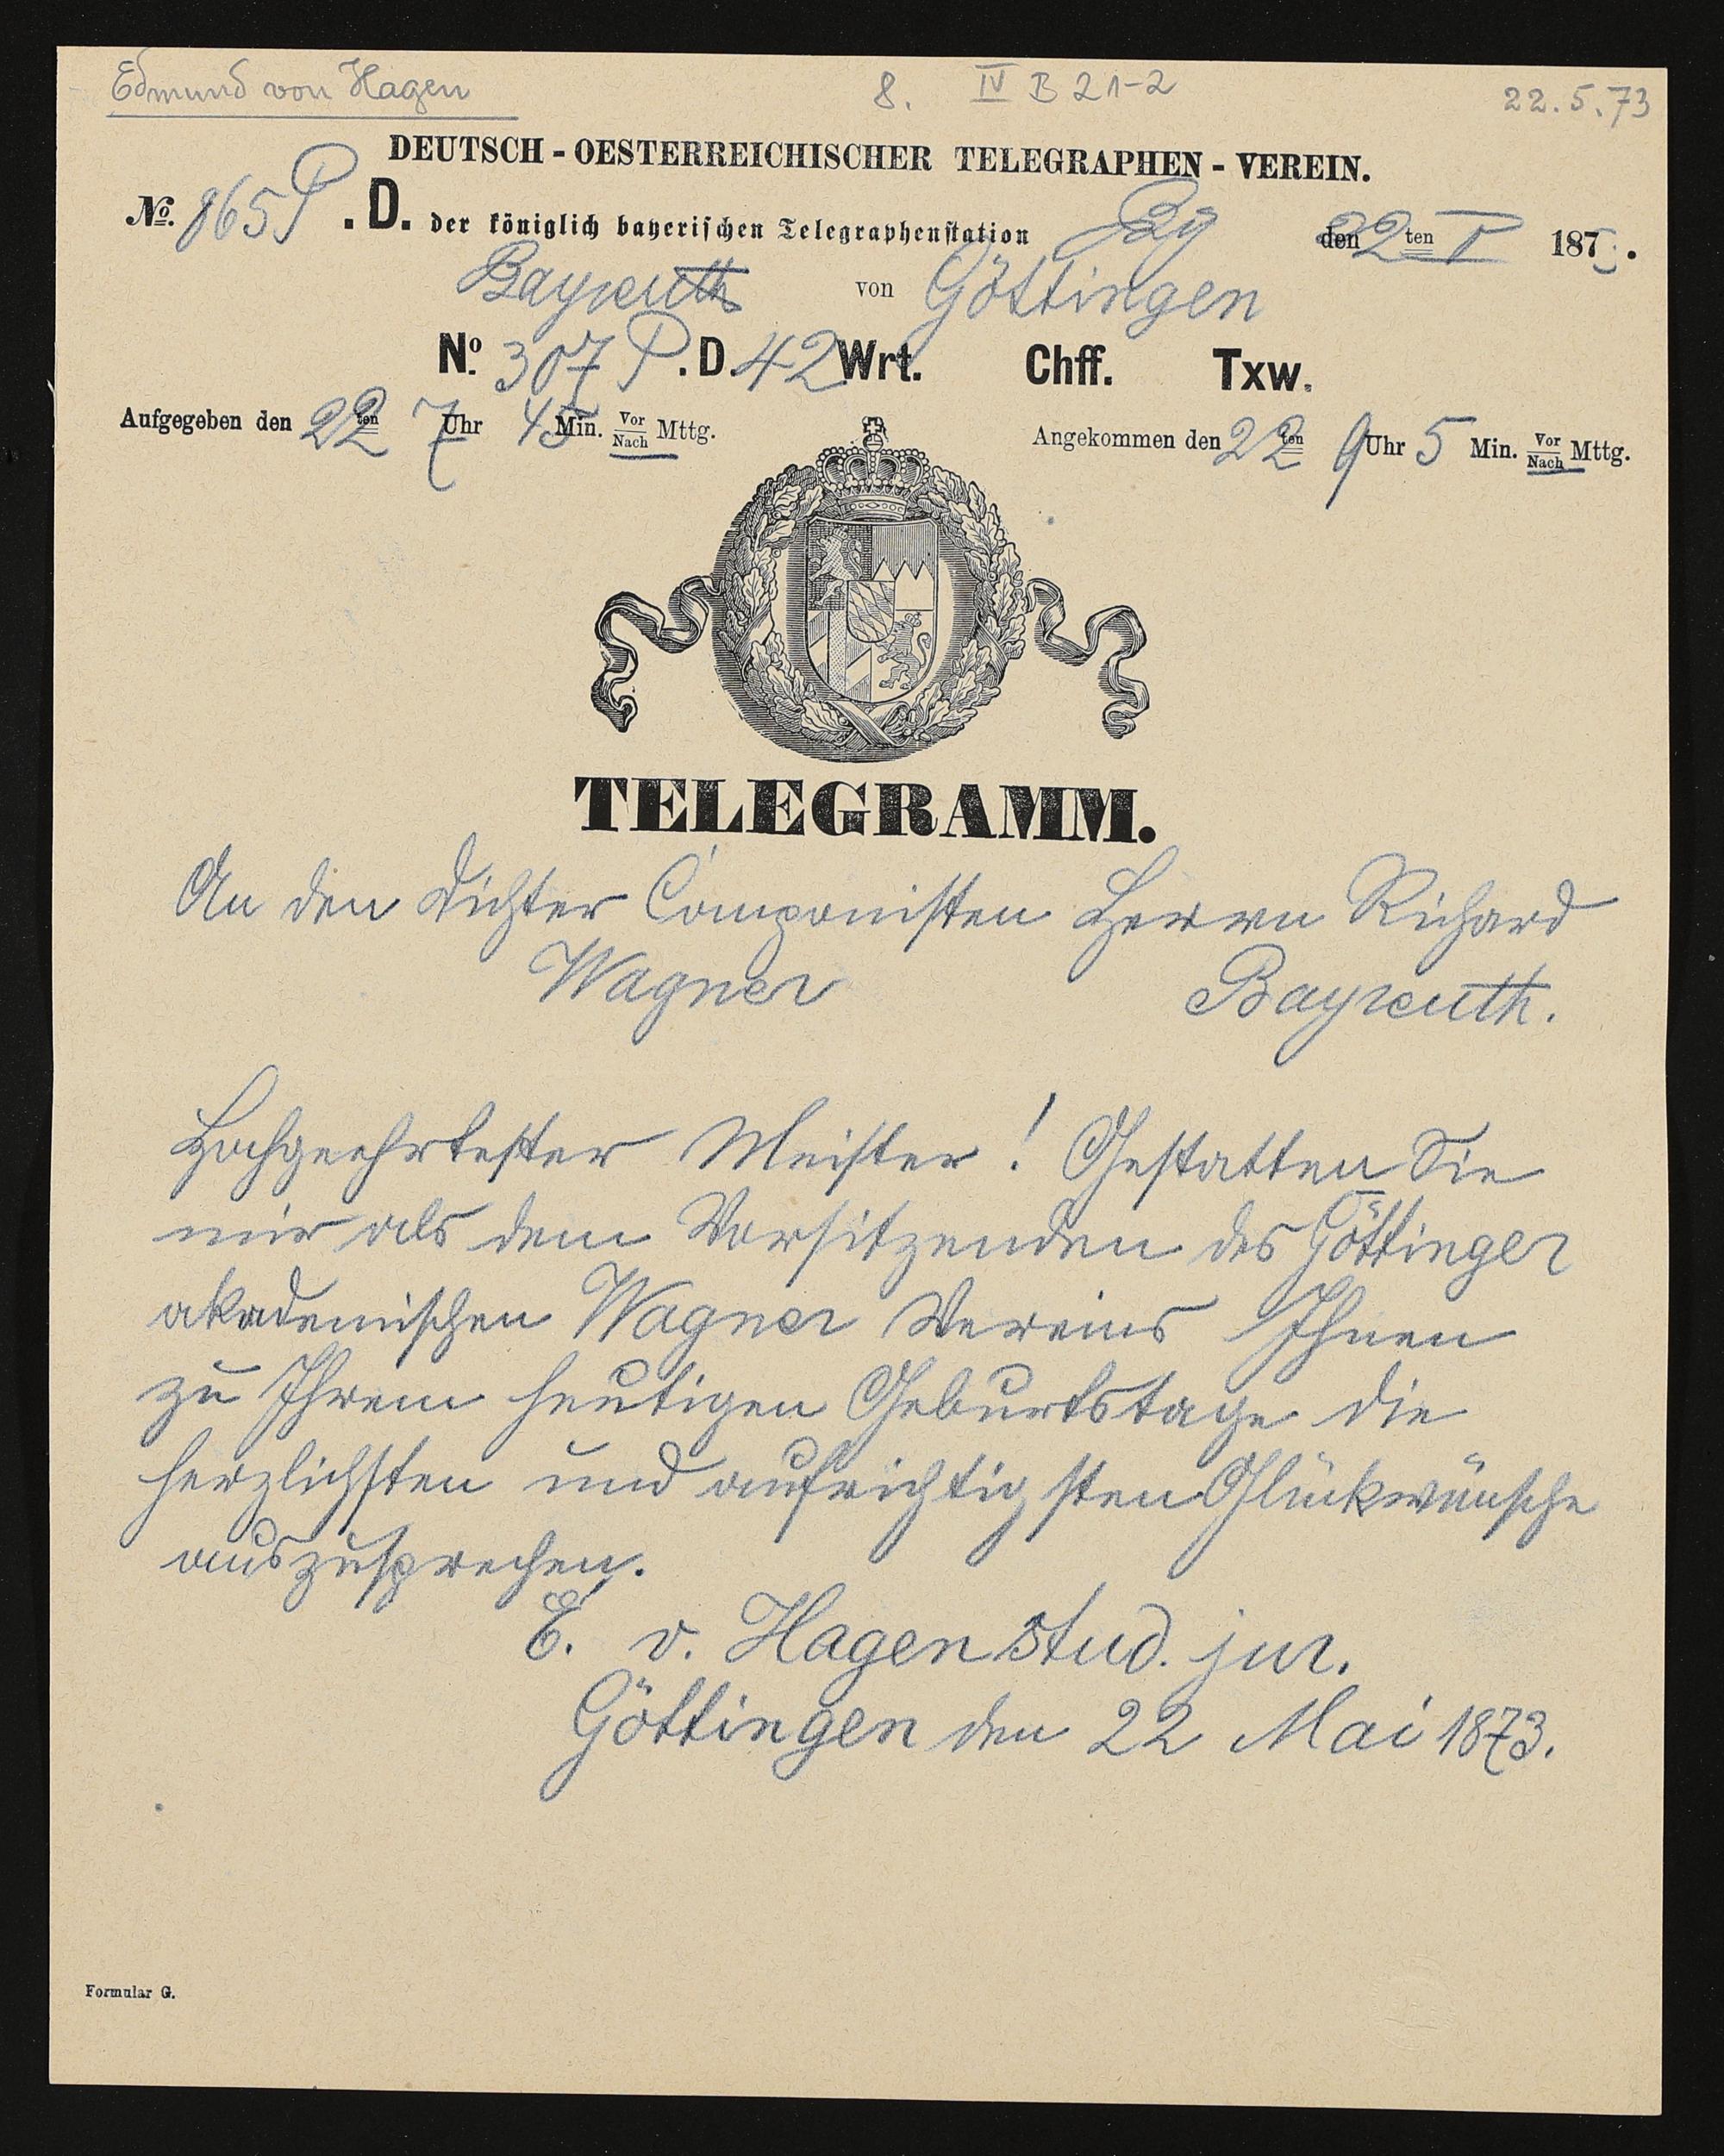 Edmund von Hagen 8. IV B 21-2 22.5.73
DEUTSCH-OESTERREICHISCHER TELEGRAPHEN-VEREIN.
No. 865 P. D. der königlich bayerischen Telegraphenstation By den 22ten V 187.
Bayreuth von Göttingen
No. 307 P. D. 42 Wrt. Chff. Txw.
Aufgegeben den 22ten 7 Uhr 45 Min. Vor/Nach Mttg. Angekommen den 22ten 9 Uhr 5 Min. Vor/Nach Mttg.
TELEGRAMM.
An den Dichter Componisten Herrn Richard
Wagner Bayreuth.
Hochgeehrtester Meister! Gestatten Sie
mir als dem Vorsitzenden des Göttinger
akademischen Wagner Vereins Ihnen
zu Ihrem heutigen Geburtstage die
herzlichsten und aufrichtigsten Glückwünsche
auszusprechen.
E. v. Hagen stud. jur.
Göttingen den 22 Mai 1873.
Formular G.